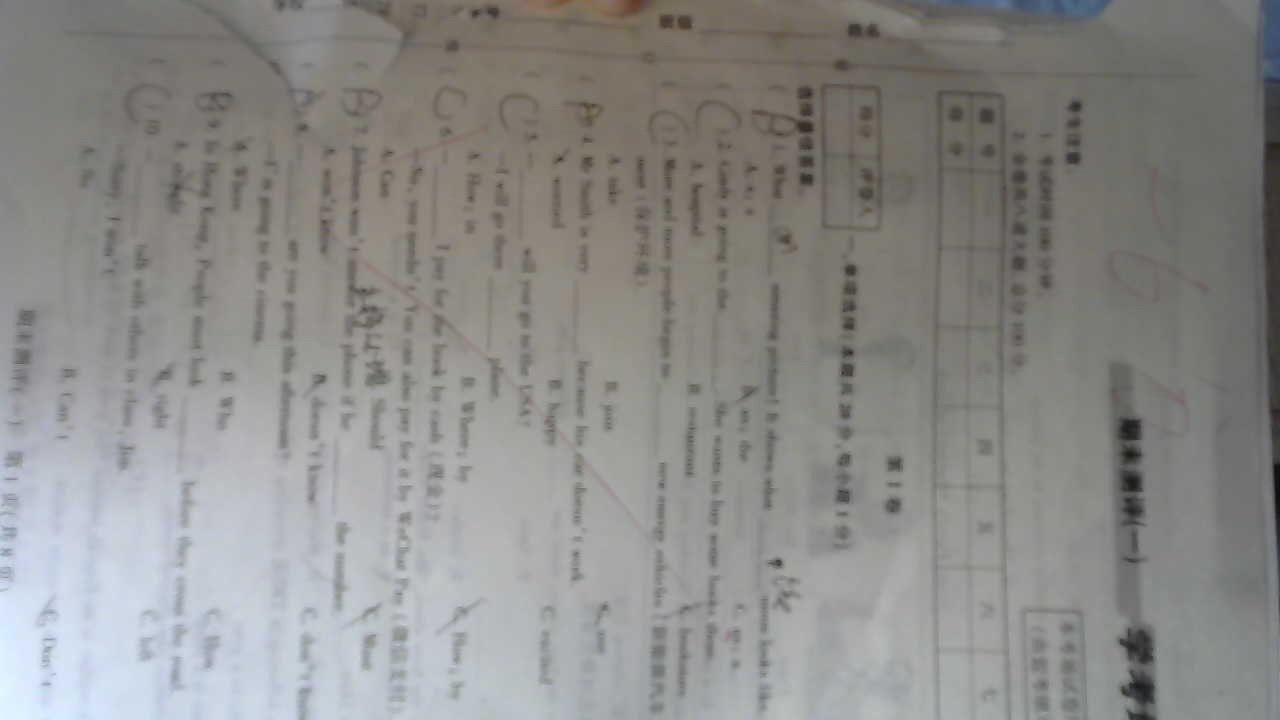 -6
期末测评(一) 学考
考生注意:
1. 考试时间 100 分钟。
2. 全卷共八道大题,总分 100 分。
本考场试卷
题 号 一 二 三 四 五 六 七
得 分
第 I 卷
得分 评卷人
一、单项选择(本题共 20 分,每小题 1 分)
选择最佳答案。
( B ) 1. What an amazing picture! It shows what the moon looks like.
A. a; a B. an; the
( C ) 2. Cindy is going to the ______. She wants to buy some books there.
A. hospital B. restaurant C. bookstore
( C ) 3. More and more people begin to ______ new energy vehicles (新能源汽车
ment (保护环境)
A. take B. join C. use
( A ) 4. Mr Smith is very ______ because his car doesn't work.
A. worried B. happy C. excited
( C ) 5. —______ will you go to the USA?
—I will go there ______ plane.
A. How; in B. Where; by C. How; by
( C ) 6. —______ I pay for the book by cash (现金)?
—No, you needn't. You can also pay for it by WeChat Pay (微信支付).
A. Can Should C. Must
( B ) 7. Johnson won't answer the phone if he ______ the number.
A. won't know B. doesn't know C. don't know
( A ) 8. —______ are you going this afternoon?
—I'm going to the cinema.
A. Where B. Who C. How
( B ) 9. In Hong Kong, People must look ______ before they cross the road.
A. straight B. right C. left
( C ) 10. —______ talk with others in class, Jim.
—Sorry, I won't.
A. No B. Can't C. Don't
期末测评(一) 第 1 页(共 8 页)